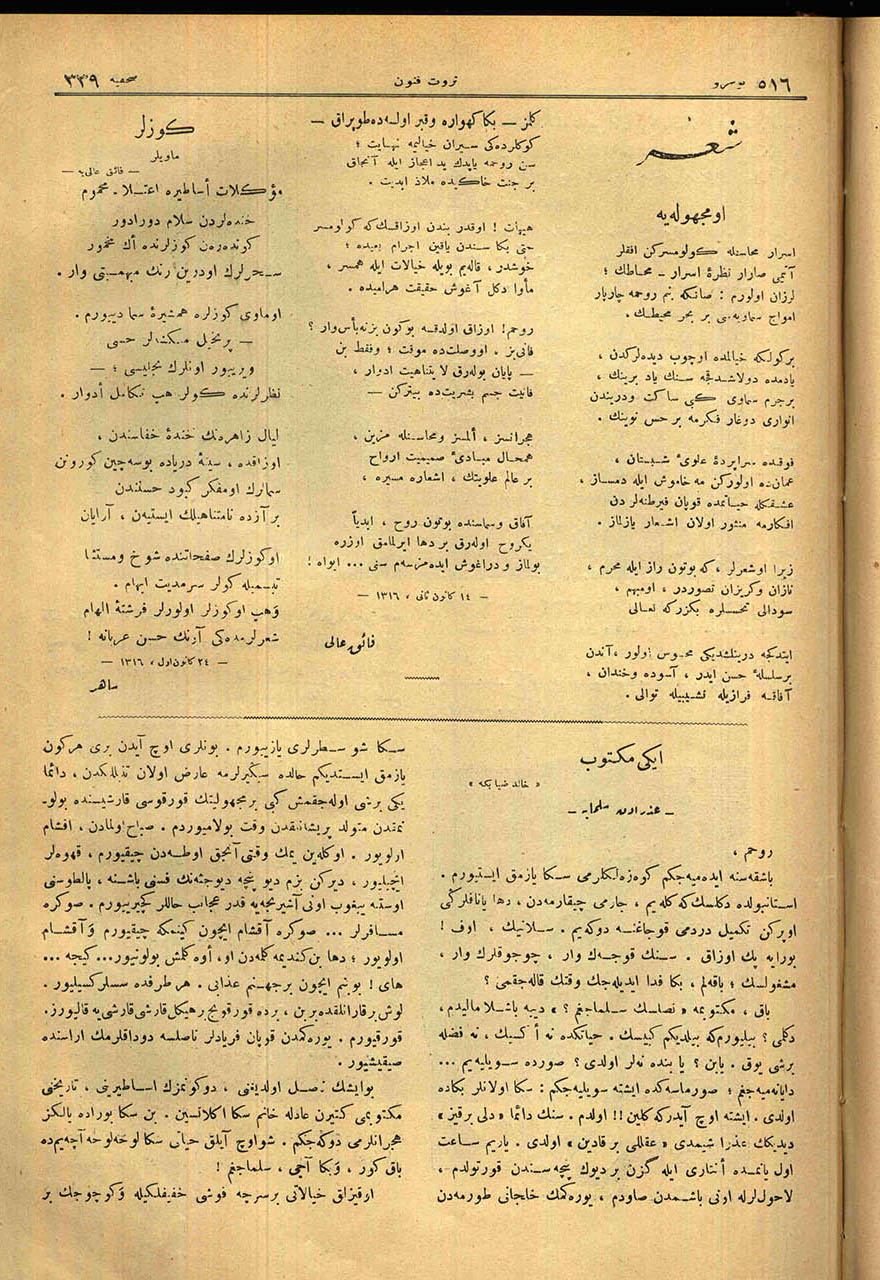 ٥١٦ نومرو
ثروت فنون
صحیفه ٣٣٩
شعر
او مجهوله یه
اسرار محاسنله كولومسركن افقلر
آتیمی صارار نظرهٔ اسرار ـ محاطك ؛
لرزان اولورم : صانكه بنم روحمه چارپار
امواج سماویه سی بر بحر محیطك .
بركولكه خیالمده اوچوب دیده لركدن ،
یادمده دولاشدقجه سنك یاد برینك ،
برجرم سماوی كبی ساكت ودریندن
انواری دوغار فكرمه بر حس نوینك .
فوقنده سراپردهٔ علوئ شبستان ،
عمانده اولوركن مه خاموش ایله دمساز ،
عشقكله حیاتمده قوپان فیرطنه لر دن
افكارمه منثور اولان اشعار یازلماز .
زیرا اوشعرلر ، كه بوتون راز ایله محرم ،
نازان وكریزان تصوردر ، اومبهم ،
سودالی تحسسلره بكزركه تعالی
ایتدكجه درینلشدیكی محسوس اولور ، آندن
برسلسلهٔ حسن ایدر ، آسوده وخندان ،
آفاقه فرازیله نشیبیله توالی .
كلمز — بكا كهواره وقبر اوله ده طوپراق —
كوكلرده كی سیران خیالیمه نهایت ؛
سن روحمه یاپدك ید اعجاز ایله آنجاق
بر جنت خاكیده ملاذ ابدیت .
هیهات ! اوقدر بندن اوزاقسك كه كولومسر
حتی بكا سندن یاقین اجرام بعیده ؛
خوشدر ، قاله یم بویله خیالات ایله همسر ،
مأوا دكل آغوش حقیقت هرامیده .
روحم ! اوزاق اولدقسه بوكون بزنه بأس وار ؟
فانی یز . اووصلت ده موقت ؛ وفقط بن
— پایان بوله رق لا یتناهیت ادوار ،
فانیت جسم بشریت ده بیتركن —
هجرانسز ، ألمسز ومحاسنله مزین ،
همحال مبادئ صمیمیت ارواح
بر عالم علویتك ، اشعاره مسیره ،
آفاق وسماسنده بوتون روح ، ابدیاً
یكروح اوله رق بر دها ایرلمامق اوزره
بولماز و دراغوش ایده مزسه م سنی ... ایواه !
— ١٤ كانون ثانی ، ١٣١٦ —
فائق عالی
كوزلر
ماویلر
— فائق عالی یه —
مؤكلات أساطیره اعتلا ـ محموم
خنده لردن سلام دورادور
كوندره ن كوزلرنده أك مخمور
سحرلرك اودرین رنك مبهمیتی وار .
اوماوی كوزلره همشیرهٔ سما دییورم .
ویریبور اونلرك تجلیسی ؛ —
نظرلرنده كولر هپ تكامل أدوار .
لیال زاهره نك خندهٔ خفاسندن ،
اوزاقده ، سینهٔ دریاده بوسه چین كورونن
سمالرك اومفكر كبود حسندن
بر آزده نامتناهیلك ایستیه ن ، آرایان
اوكوزلرك صفحاتنده شوخ ومستثنا
تبسمیله كولر سرمدیت ابهام .
وهپ اوكوزلر اولورلر فرشتهٔ الهام
شعرلرمده كی آهنك حسن عریانه !
— ٢٤ كانون اول ، ١٣١٦ —
ساهر
ایكی مكتوب
« خالد ضیا بكه »
— عذرادن سلمایه —
روحم ،
باشقه سنه ایده میه جكم كوه زه لكلرمی سكا یازمق ایستیورم .
استانبولده دكلسك كه كله یم ، جارمی چیقارمه دن ، دها یاناقلركی
اوپركن تكمیل دردمی قوجاغنه دوكه یم . سلانیك ، اوف !
بورایه پك اوزاق . سنك قوجه ك وار ، چوجوقلرك وار ،
مشغولسك ؛ باقه لم ، بكا فدا ایدیله جك وقتك قاله جقمی ؟
باق ، مكتوبمه « نصلسك سلماجغم ؟ » دییه باشلا مالیدم ،
دكلمی ؟ بیلیورم كه بیلدیكم كیبسك . حیاتكده نه أكسیك ، نه فضله
برشی یوق . یابن ؟ یا بنده نه لر اولدی ؟ صورده سویلیه یم ...
دایانه میه جغم ؛ صورماسه كده ایشته سویلیه جكم : سكا اولانلر بكاده
اولدی . ایشته اوچ آیدر كه كلین !! اولدم . سنك دائما « دلی برقیز »
دیدیكك عذرا شیمدی « عقللی بر قادین » اولدی . یاریم ساعت
اول یانمده أنتاری ایله گزن بر دیوك پنچه سندن قورتولدم ،
لاحول لرله اونی باشمدن صاودم ، یوره كمك خلجانی طورمه دن
سكا شو سطرلری یازییورم . بونلری اوچ آیدن بری هركون
یازمق ایستدیكم حالده سكیرلرمه عارض اولان تنبللكدن ، دائما
یكی برشی اوله جقمش كبی بر مجهولیتك قورقوسی قارشیسنده بولو ـ
نمقدن متولد پریشانلقدن وقت بولامیوردم . صباح اولمادن ، اقشام
اولویور . اوكله ین یمك وقتی آنجق اوطه دن چیقیورم ، قهوه لر
ایچیلیور ، دیركن بزم دیو پنچه دیوجثه نك فسنی باشنه ، پالطوسنی
اوستنه یبغوب اونی آشیرنجه یه قدر عجائب حاللر كچیرییورم . صوكره
مسافرلر ... صوكره آقشام ایچون كینمكه چیقیورم وآقشام
اولویور ؛ دها بن كندیمه كله دن او ، أوه كلمش بولونیور ... كیجه ...
های ! بو نیم ایچون برجهنم عذابی . هر طرفده سسلر كسیلیور .
لوش برقارانلقده بر بن ، برده قورقونج برهیكل قارشی قارشی یه قالییورز .
قورقیورم . یوره كمدن قوپان فریادلر ناصلسه دوداقلرمك اراسنده
صیقیشیور .
بوایشك نصل اولدیغنی ، دوكونمزك اساطیرینی ، تاریخنی
مكتوبمی كتیرن عادله خانم سكا اكلاتسین . بن سكا بوراده یالكز
هجرانلرمی دوكه جكم . شو اوچ آیلق حیاتی سكا لوحه لوحه آچه یم ده
باق كور ، وبكا آجی ، سلماجغم !
اوقیزلق خیالاتی برسرچه قوشی خفیفلكیله وكوچوجك بر